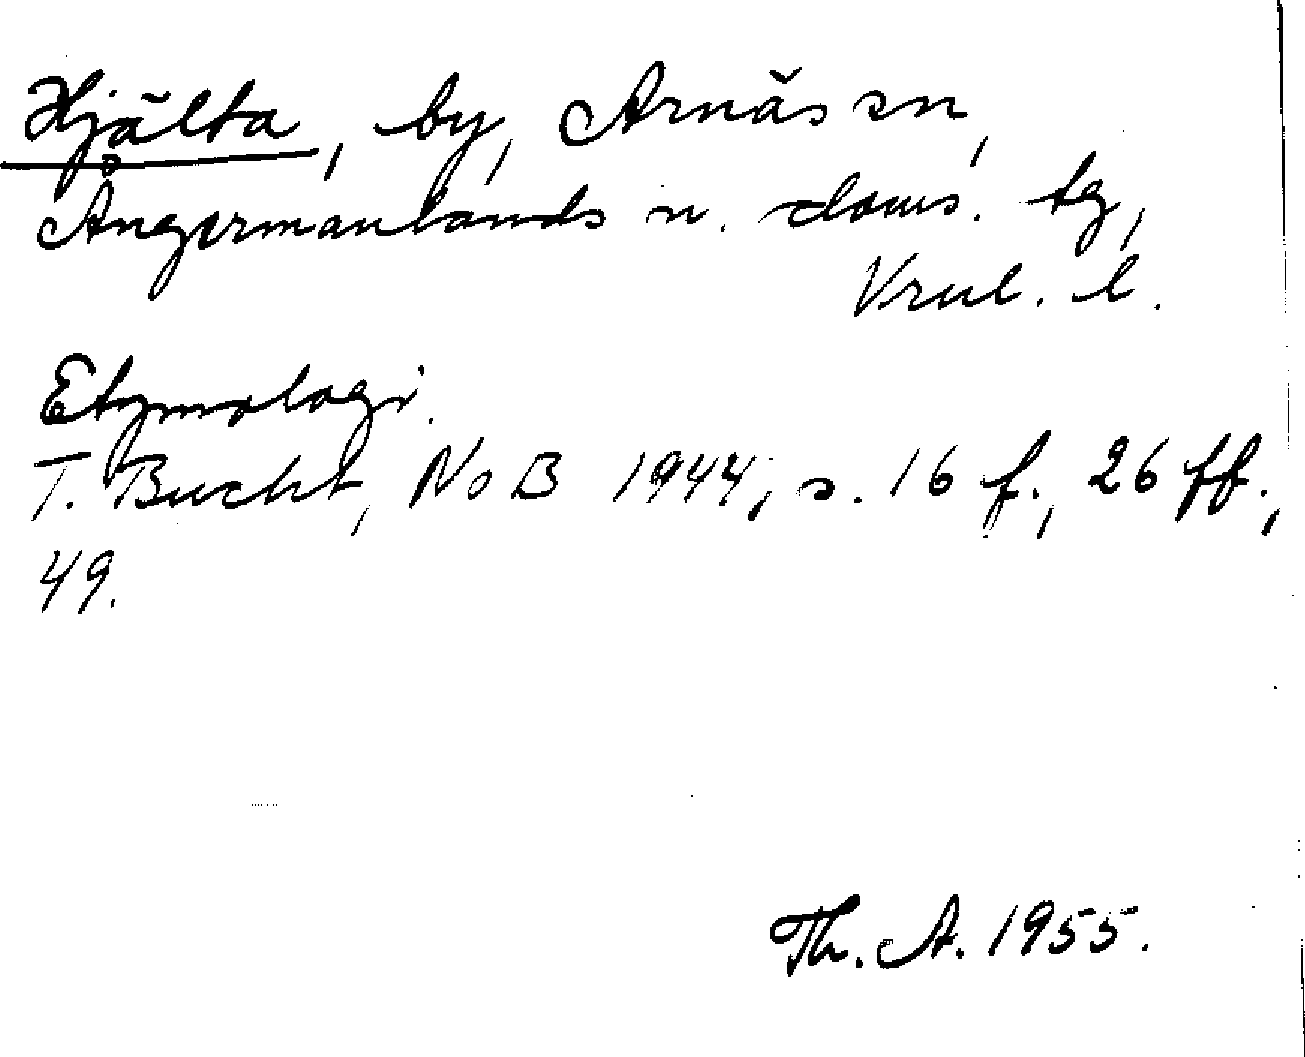 Hjälta, by, Arnäs sn,
Ångermanlands n. doms. tg,
Vrnl. l.
Etymologi.
T. Bucht, NoB 1944, s. 16 f., 26 ff.,
49.
Th. A. 1955.